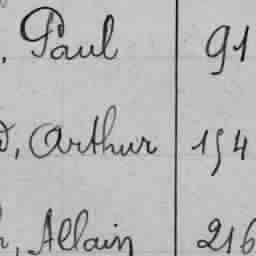 , Paul 91
, Arthur 154
, Allain 216